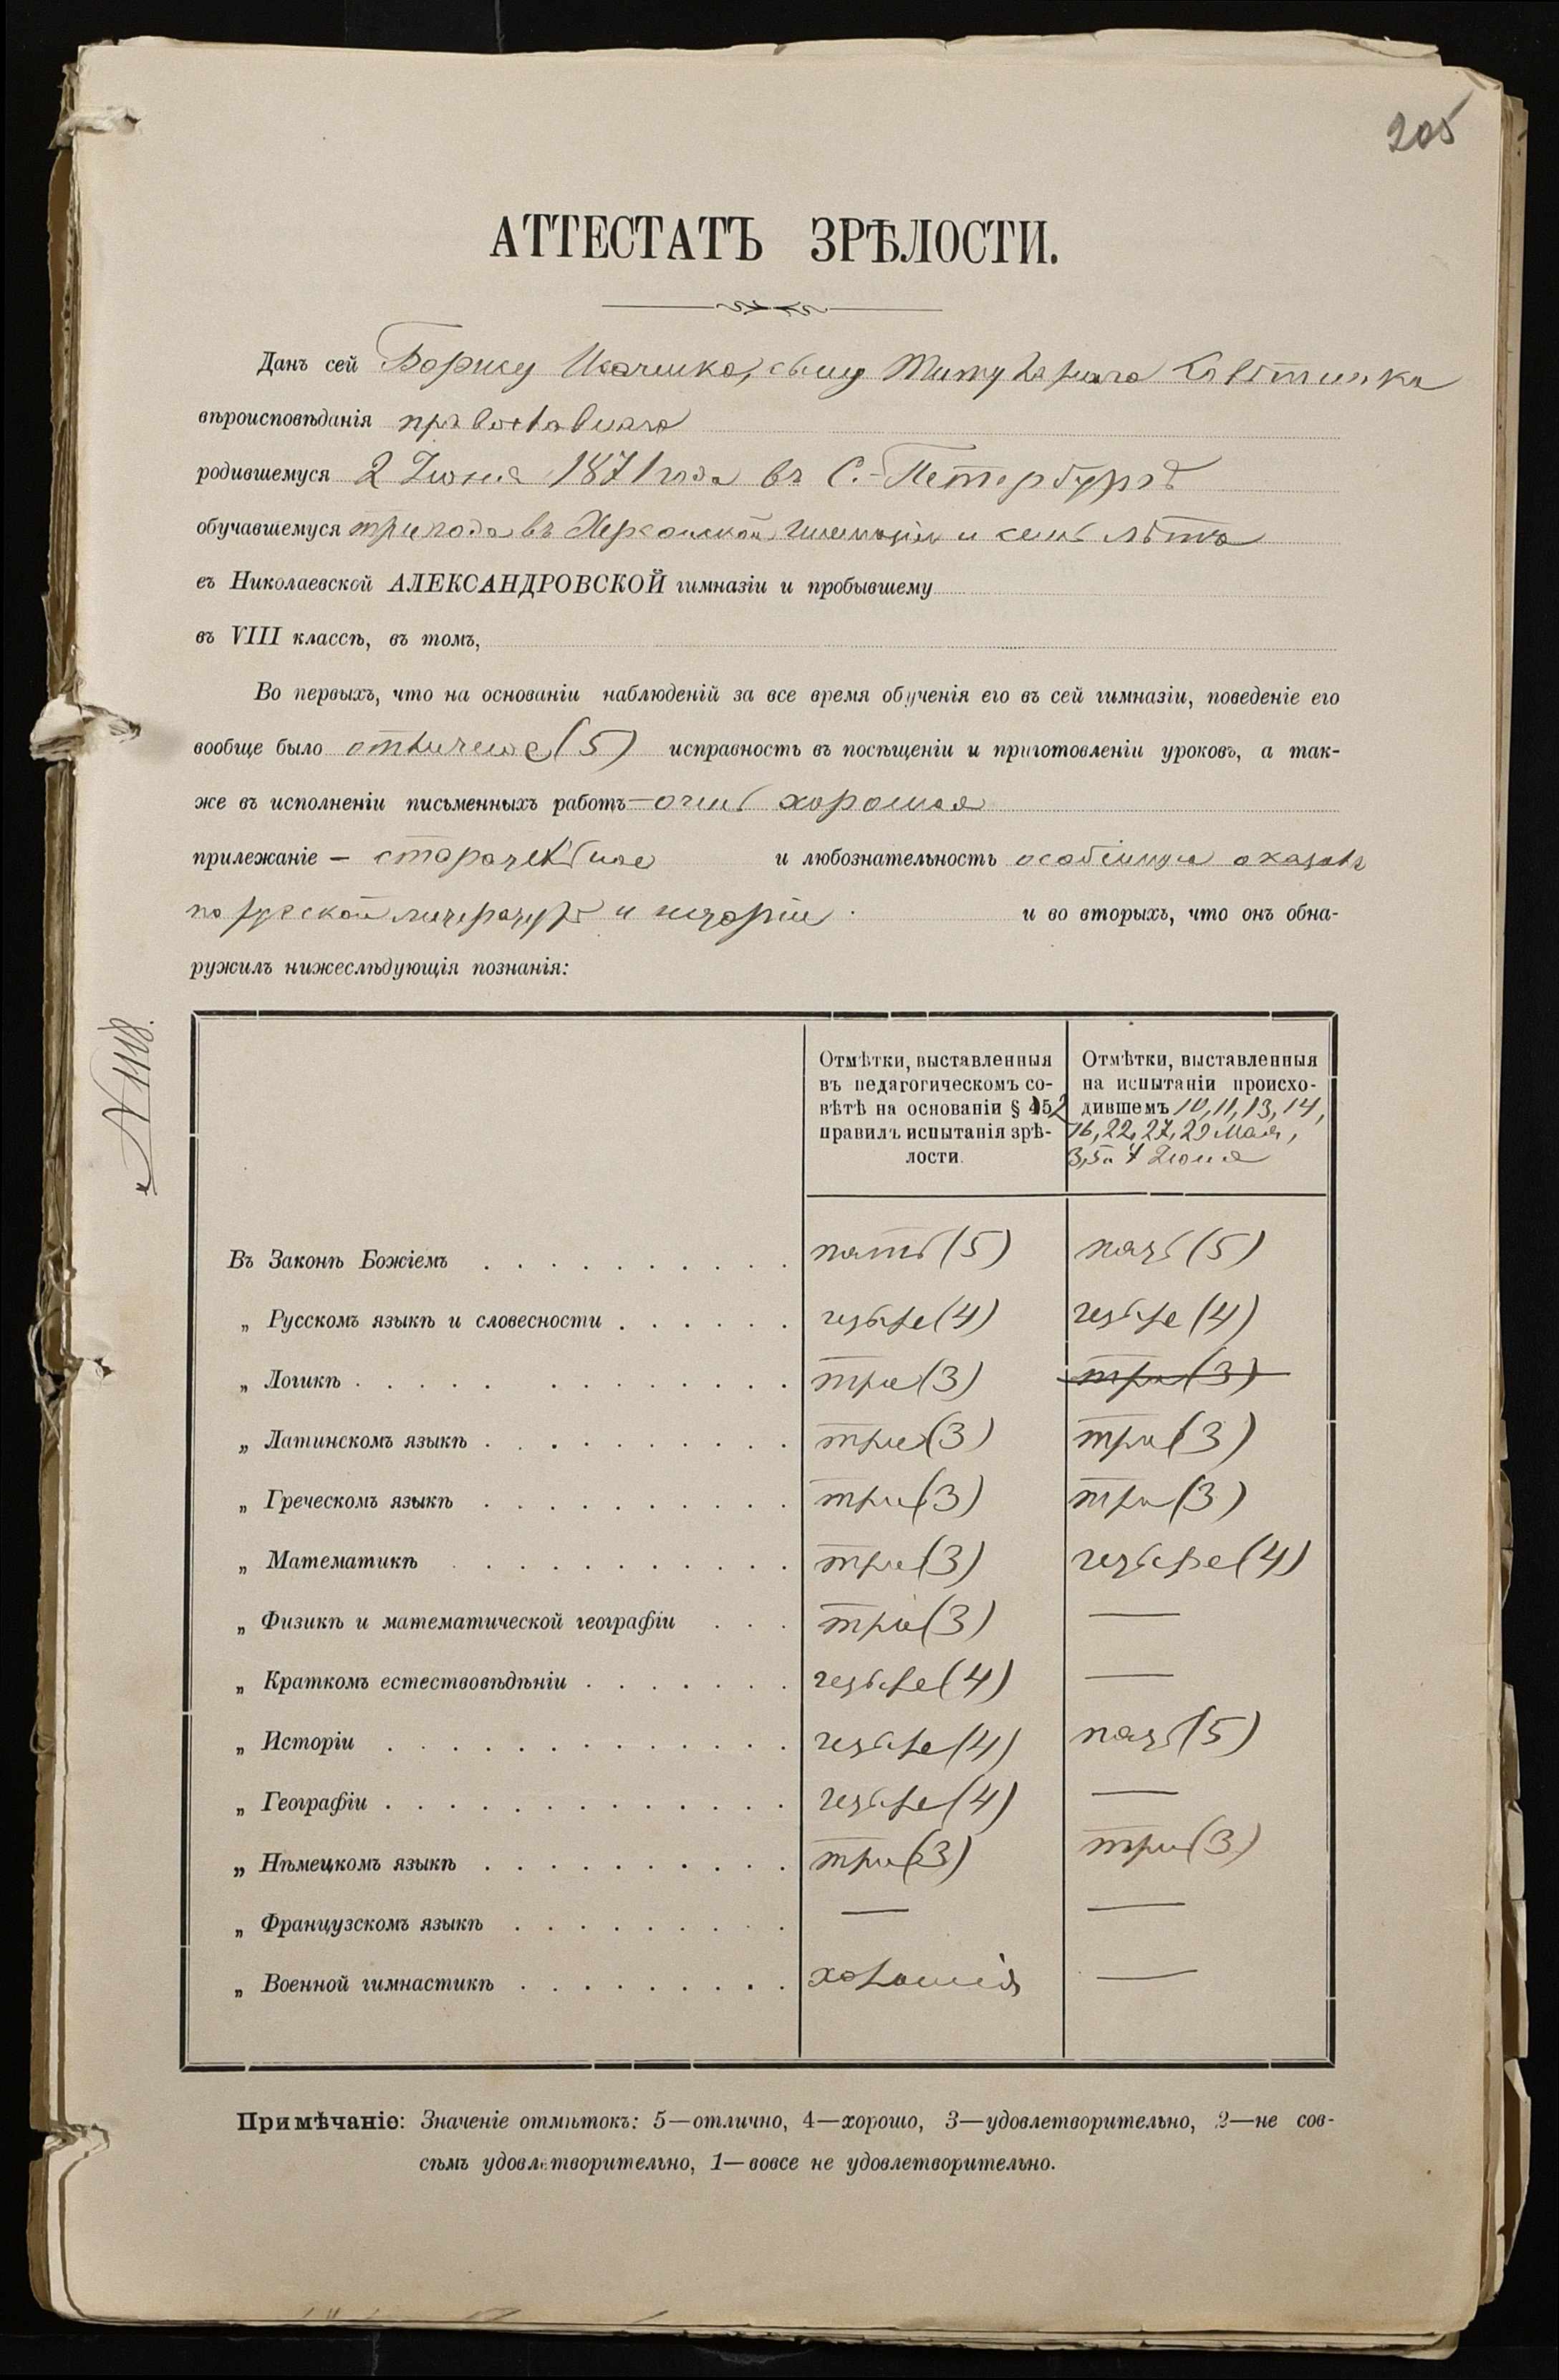 205
АТТЕСТАТЪ ЗРѢЛОСТИ.
Данъ сей Борису сыну Титулярнаго Совѣтника
вѣроисповѣданія православнаго
родившемуся 2 Іюня 1871 года въ С.-Петербургѣ
обучавшемуся три года въ Херсонской гимназіи и семь лѣтъ
въ Николаевской АЛЕКСАНДРОВСКОЙ гимназіи и пробывшему
въ VIII классѣ, въ томъ,
Во первыхъ, что на основаніи наблюденій за все время обученія его въ сей гимназіи, поведеніе его
вообще было отличное (5) исправность въ посѣщеніи и приготовленіи уроковъ, а так-
же въ исполненіи письменныхъ работъ — очень хорошая
прилежаніе — старательное и любознательность особенную оказалъ
по русской литературѣ и исторіи и во вторыхъ, что онъ обна-
ружилъ нижеслѣдующія познанія:
N 1118.
Отмѣтки, выставленныя
въ педагогическомъ со-
вѣтѣ на основаніи § 52
правилъ испытанія зрѣ-
лости.
Отмѣтки, выставленныя
на испытаніи происхо-
дившемъ 10, 11, 13, 14,
16, 22, 27, 29 Мая,
3, 5 и 7 Іюня
Въ Законѣ Божіемъ . . . . . . . . . . пять (5) пять (5)
„ Русскомъ языкѣ и словесности . . . . . . четыре (4) четыре (4)
„ Логикѣ . . . . . . . . . . . . . три (3) три (3)
„ Латинскомъ языкѣ . . . . . . . . . . три (3) три (3)
„ Греческомъ языкѣ . . . . . . . . . . три (3) три (3)
„ Математикѣ . . . . . . . . . . . три (3) четыре (4)
„ Физикѣ и математической географіи . . . три (3) —
„ Краткомъ естествовѣдѣніи . . . . . . . четыре (4) —
„ Исторіи . . . . . . . . . . . . . четыре (4) пять (5)
„ Географіи . . . . . . . . . . . . . четыре (4) —
„ Нѣмецкомъ языкѣ . . . . . . . . . . три (3) три (3)
„ Французскомъ языкѣ . . . . . . . . . — —
„ Военной гимнастикѣ . . . . . . . . . хорошія —
Примѣчаніе: Значеніе отмѣтокъ: 5—отлично, 4—хорошо, 3—удовлетворительно, 2—не сов-
сѣмъ удовлетворительно, 1—вовсе не удовлетворительно.